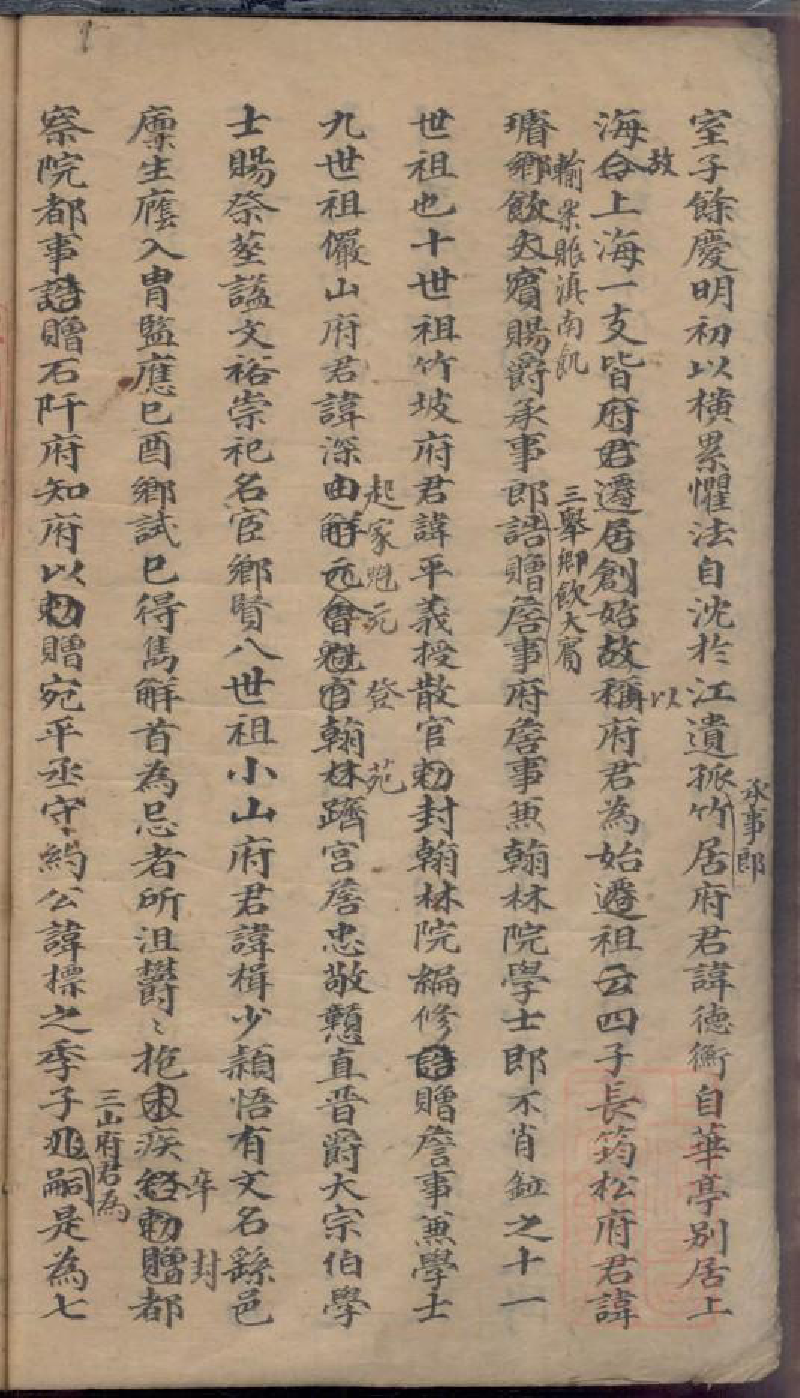 室子餘慶明初以橫累懼法自沈於江遺孤竹居府君諱德衡自華亭別居上
承事郎
海令上海一支皆府君遷居創始故稱府君為始遷祖云四子長筠松府君諱
故
以
璿鄉飲大賓賜爵承事郎誥贈詹事府詹事兼翰林院學士郎不肖鈳之十一
輸粟賑滇南飢
三舉鄉飲大賓
世祖也十世祖竹坡府君諱平義授散官勅封翰林院編修誥贈詹事兼學士
九世祖儼山府君諱深由解元會魁官翰林躋宮詹忠敬戇直晋爵大宗伯學
起家魁元
登
苑
士賜祭塟諡文裕崇祀名宦鄉賢八世祖小山府君諱楫少穎悟有文名繇邑
廩生廕入胄監應己酉鄉試已得雋解首為忌者所沮欝〻抱疾勅贈都
卒
封
察院都事誥贈石阡府知府以勅贈宛平丞守約公諱標之季子嗣是為七
三山府君為